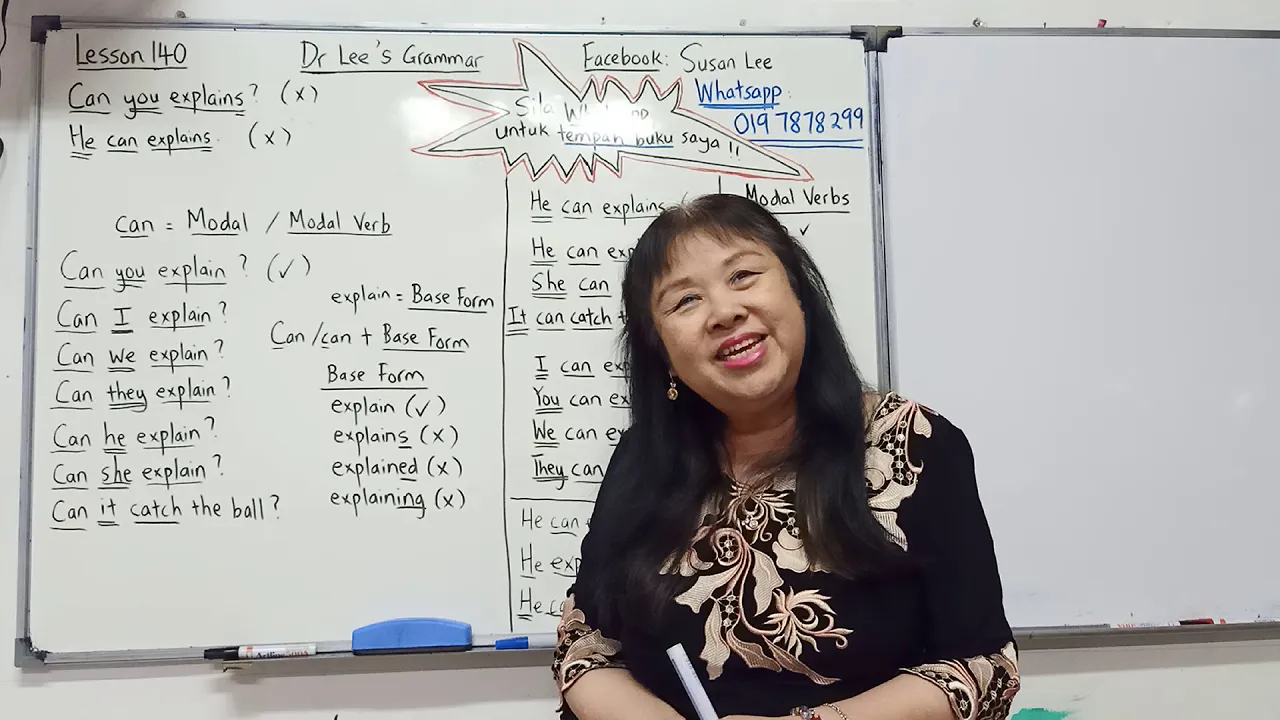 Lesson 140
Dr Lee's Grammar
Facebook: Susan Lee
Whatsapp:
019 7878 299
Sila Whatsapp
untuk tempah buku saya !!
Can you explains? (x)
He can explains. (x)
can = Modal / Modal Verb
Can you explain? (✓)
Can I explain?
Can we explain?
Can they explain?
Can he explain?
Can she explain?
Can it catch the ball?
explain = Base Form
Can/can + Base Form
Base Form
explain (✓)
explains (x)
explained (x)
explaining (x)
He can explains
He can
She can
It can catch
I can
You can
We can
They can
He can
He
He
Modal Verbs
✓